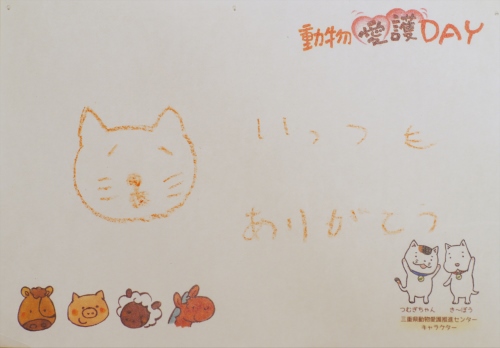 動物愛護DAY
いつつも
ありがとう
つむぎちゃん きーぼう
三重県動物愛護推進センター
キャラクター